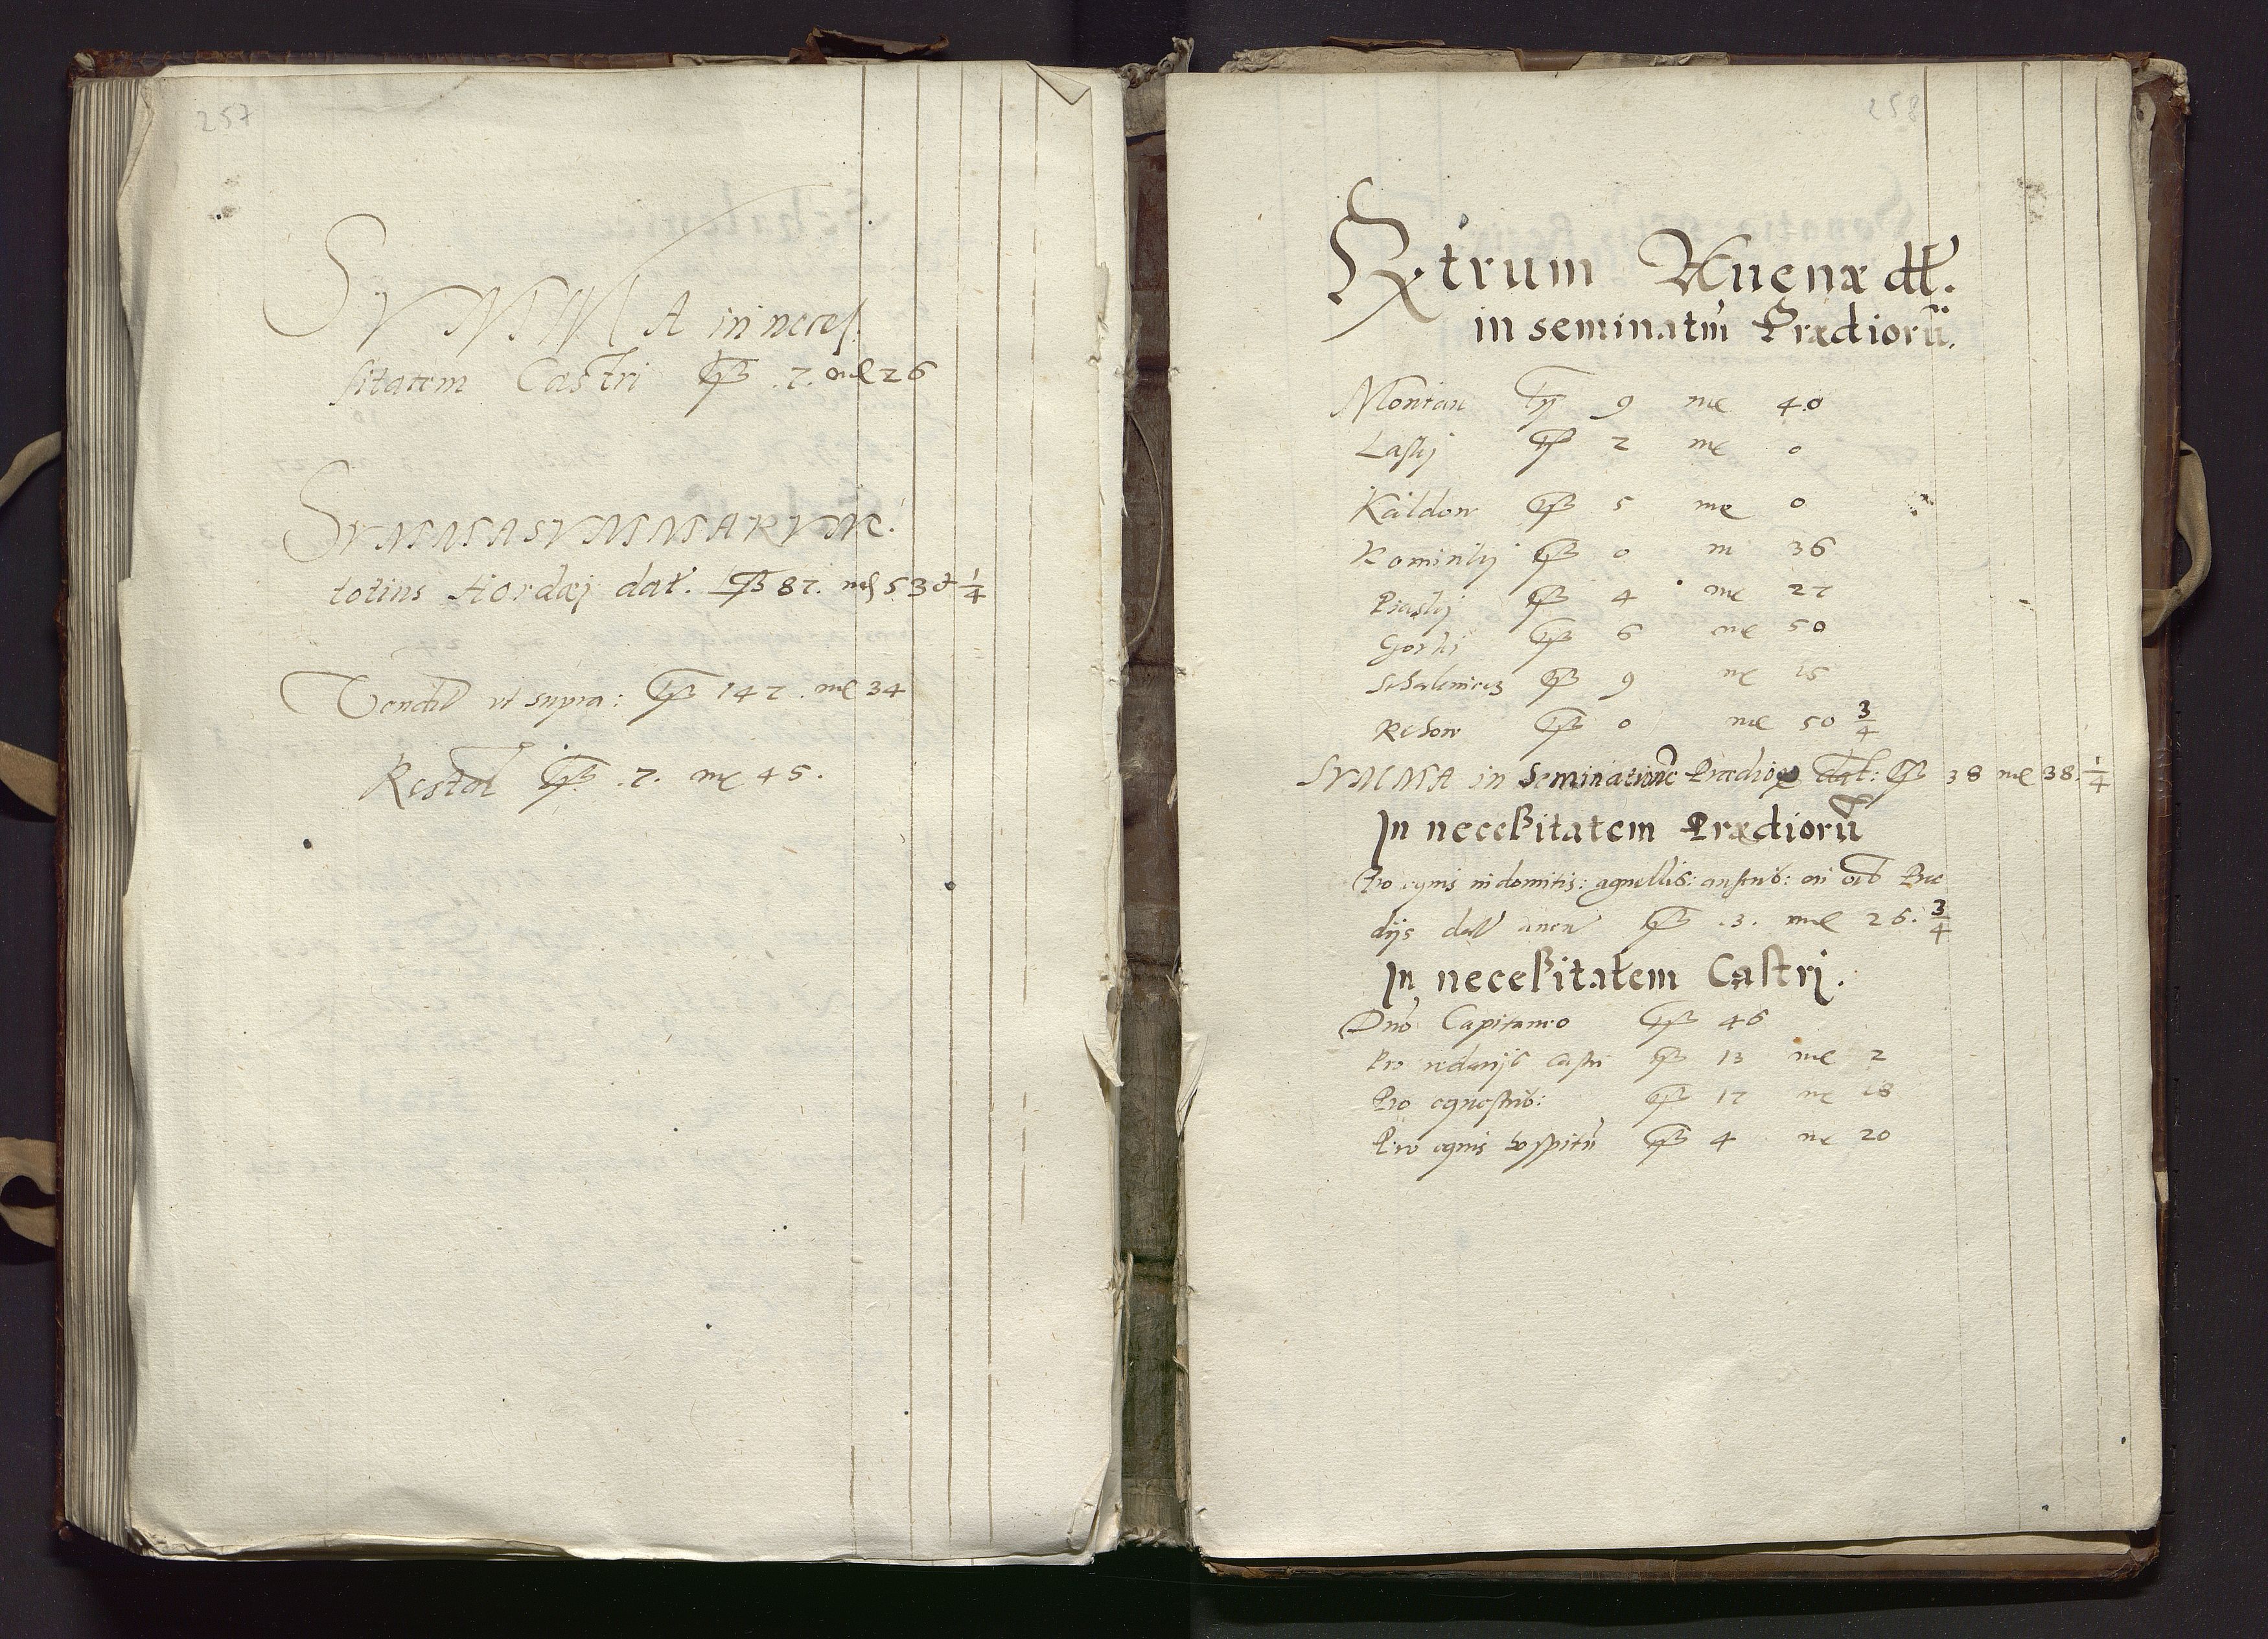 257
SVMMA in neces
sitatem Castri 7. me 26
SVMMA SVMMARVM.
totius Hordæi dat. 87. me 53 et 1/4
Vendit vt supra: 147. me 34
Restat 7. me 45.
258
Extrum Auenæ
in seminatur Prædiorū.
Montau 9 me 40
Lasky 2 me 0
Kaldow 5 me 0
0 m 36
4 me 27
Gorki 6 me 50
9 me 15
0 me 50 3/4
SVMMA in Seminatione Prædior dat: 38 me 38. 1/4
In neceßitatem Prædiorū
Pro equis indomitis: agnellis: Præ
dijs dat auen 3. me 26. 3/4
In neceßitatem Castri.
Dno Capitaneo 46
Pro redarijs castri 13 me 2
Pro equestrib: 17 me 18
Pro equis hospitū 4 me 20